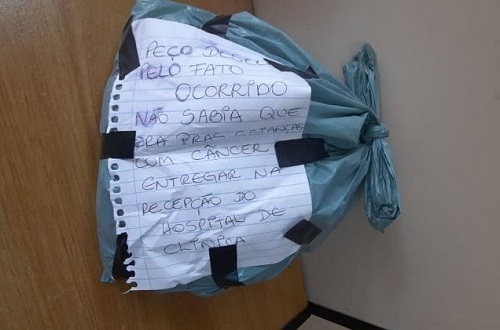 PEÇO DESCU
PELO FATO
OCORRIDO
NÃO SABIA QUE
ERA PRAS CRIANÇAS
COM CÂNCER
ENTREGAR NA
RECEPÇÃO DO
HOSPITAL DE
CLÍNICA